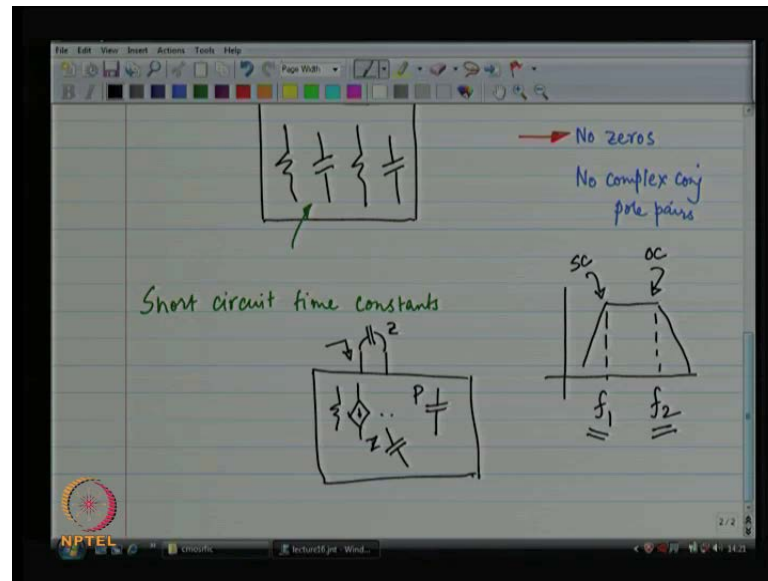 File Edit View Insert Actions Tools Help
Page Width
B I
No zeros
No complex conj
pole pairs
SC OC
Short circuit time constants
z
P
z
f1 f2
2/2
NPTEL
cmosrfic
lecture16.jnt - Wind...
14:21